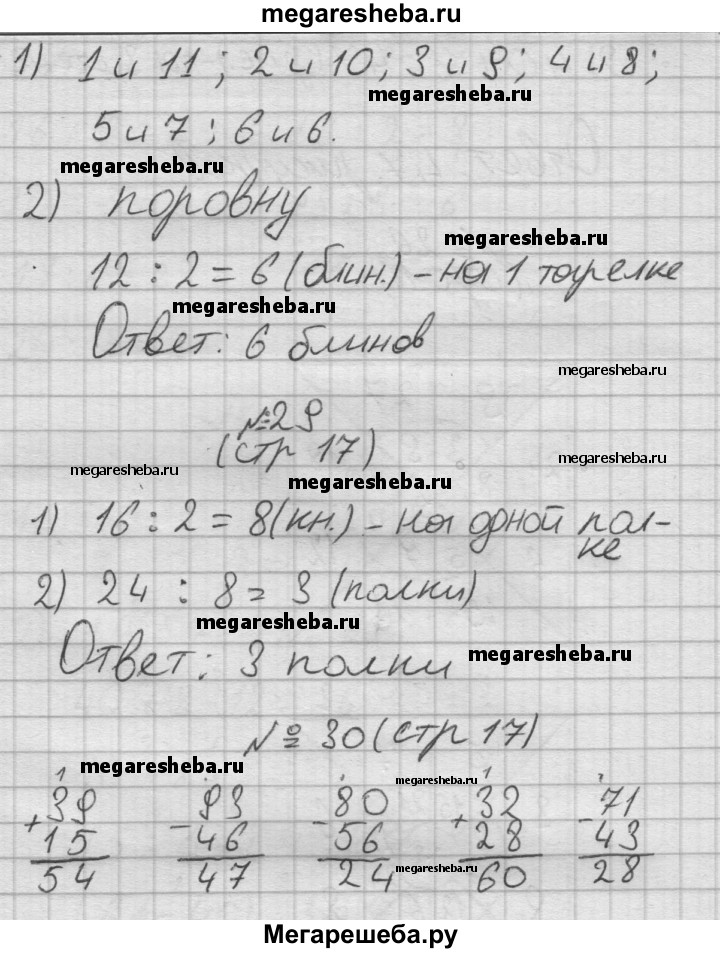 megaresheba.ru
1) 1 и 11 ; 2 и 10 ; 3 и 9 ; 4 и 8 ;
megaresheba.ru
5 и 7 ; 6 и 6.
megaresheba.ru
2) поровну
megaresheba.ru
12 : 2 = 6 (блин.) - на 1 тарелке
megaresheba.ru
Ответ: 6 блинов
megaresheba.ru
№29
(стр 17)
megaresheba.ru
megaresheba.ru
1) 16 : 2 = 8 (кн.) - на одной пол-
ке
2) 24 : 8 = 3 (полки)
megaresheba.ru
Ответ: 3 полки
megaresheba.ru
№ 30 (стр 17)
megaresheba.ru
megaresheba.ru
1 . 1 .
39 93 80 32 71
+ - - + -
15 46 56 28 43
54 47 24 60 28
megaresheba.ru
Мегарешеба.ру